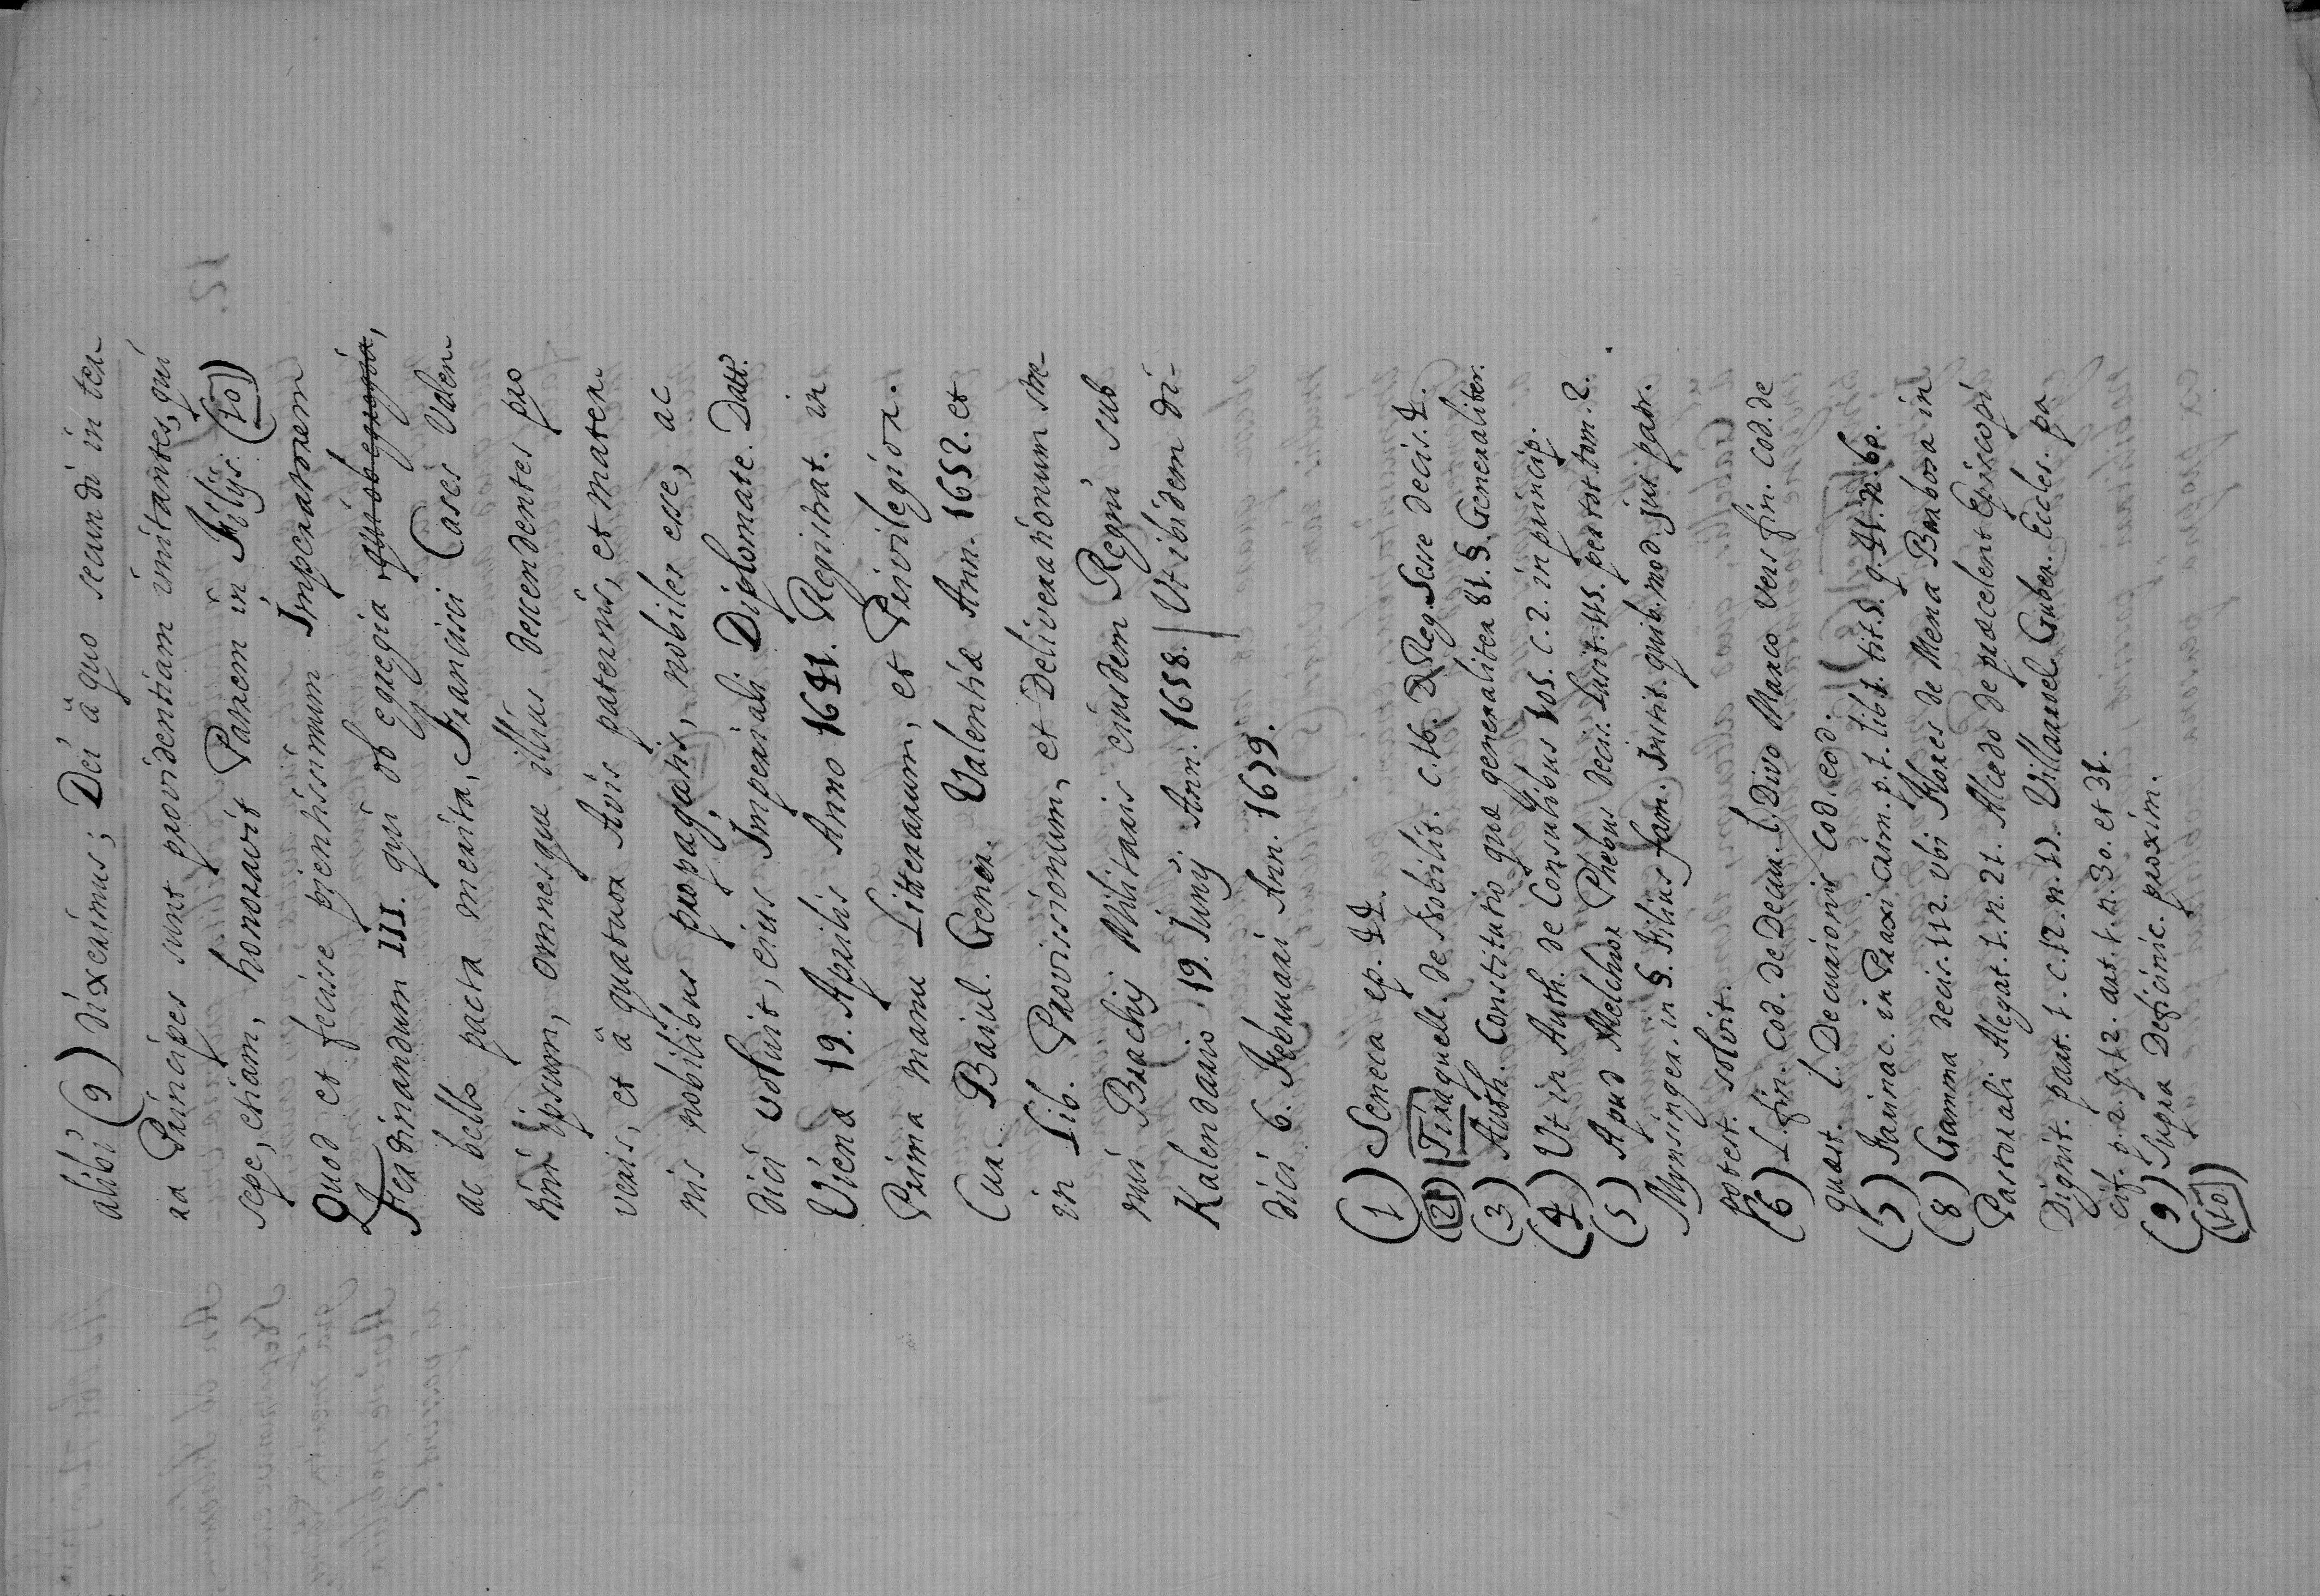 alibi (9) dixerimus; Dei à quo secundi in ter-
ra Principes sunt providentiam imitantes, qui
sepe, etiam, honoravit Patrem in Filijs. (10)
Quod et fecisse pientissimum Imperatorem
Ferdinandum III. qui ob egregia qui ob egregia,
ac bello pacta merita, Francisci Cases Valen-
tini ipsum, omnesque illius descendentes pro
veris, et à quatuor Avis paternis, et mater-
nis nobilibus propagatis, nobiles esse, ac
dici voluit, eius Imperiali Diplomate. Datt.
Viena 19. Aprilis Anno 1641. Registrat. in
Prima manu Litterarum, et Privilegior.
Cur. Baiul. Gener. Valentiæ Ann. 1652. et
in Lib. Provissionum, et Deliverationum sm-
nui Brachij Militaris eiusdem Regni sub
Kalendario, 19. Iunij. Ann. 1658. / Ut ibidem di-
dici 6. Februari Ann. 1679.
(1) Seneca ep. 44.
(2) Tiraquell. de Nobilit. c. 16. D. Reg. Sesse decis. 4.
(3) Auth. Constitutio quæ generaliter 81. §. Generaliter.
(4) Ut in Auth. de Consulibus 105. c. 2. in princip.
(5) Apud Melchior Phebus decis. Lusit. 145. per tot. tom. 2.
Mynsinger. in §. Filius fam. Instit. quib. mod. jus patr.
potest. solvit.
(6) L. fin. Cod. de Decur. l. Divo Marco vers. fin. Cod. de
quæst. l. Decurionis Cod. eod.
(7) Farinac. in Praxi Crim. p. 1. lib. 1. tit. 5. q. 41. n. 60.
(8) Gamma decis. 112. Vbi Flores de Mena Barbosa in
Pastorali Alegat. 1. n. 21. Macedo de præcelent Episcopi
Dignit. part. 1. c. 12. n. 17. Villarruel Guber. Eccles. pa
cif. p. 2. q. 12. art. 1. n. 30. et 31.
(9) Supra Definic. proxim.
(10)